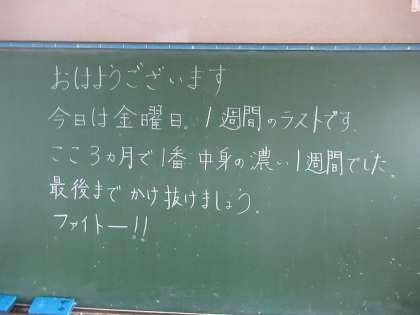 おはようございます
今日は金曜日。1週間のラストです。
ここ3ヵ月で1番中身の濃い1週間でした。
最後までかけ抜けましょう。
ファイトー!!